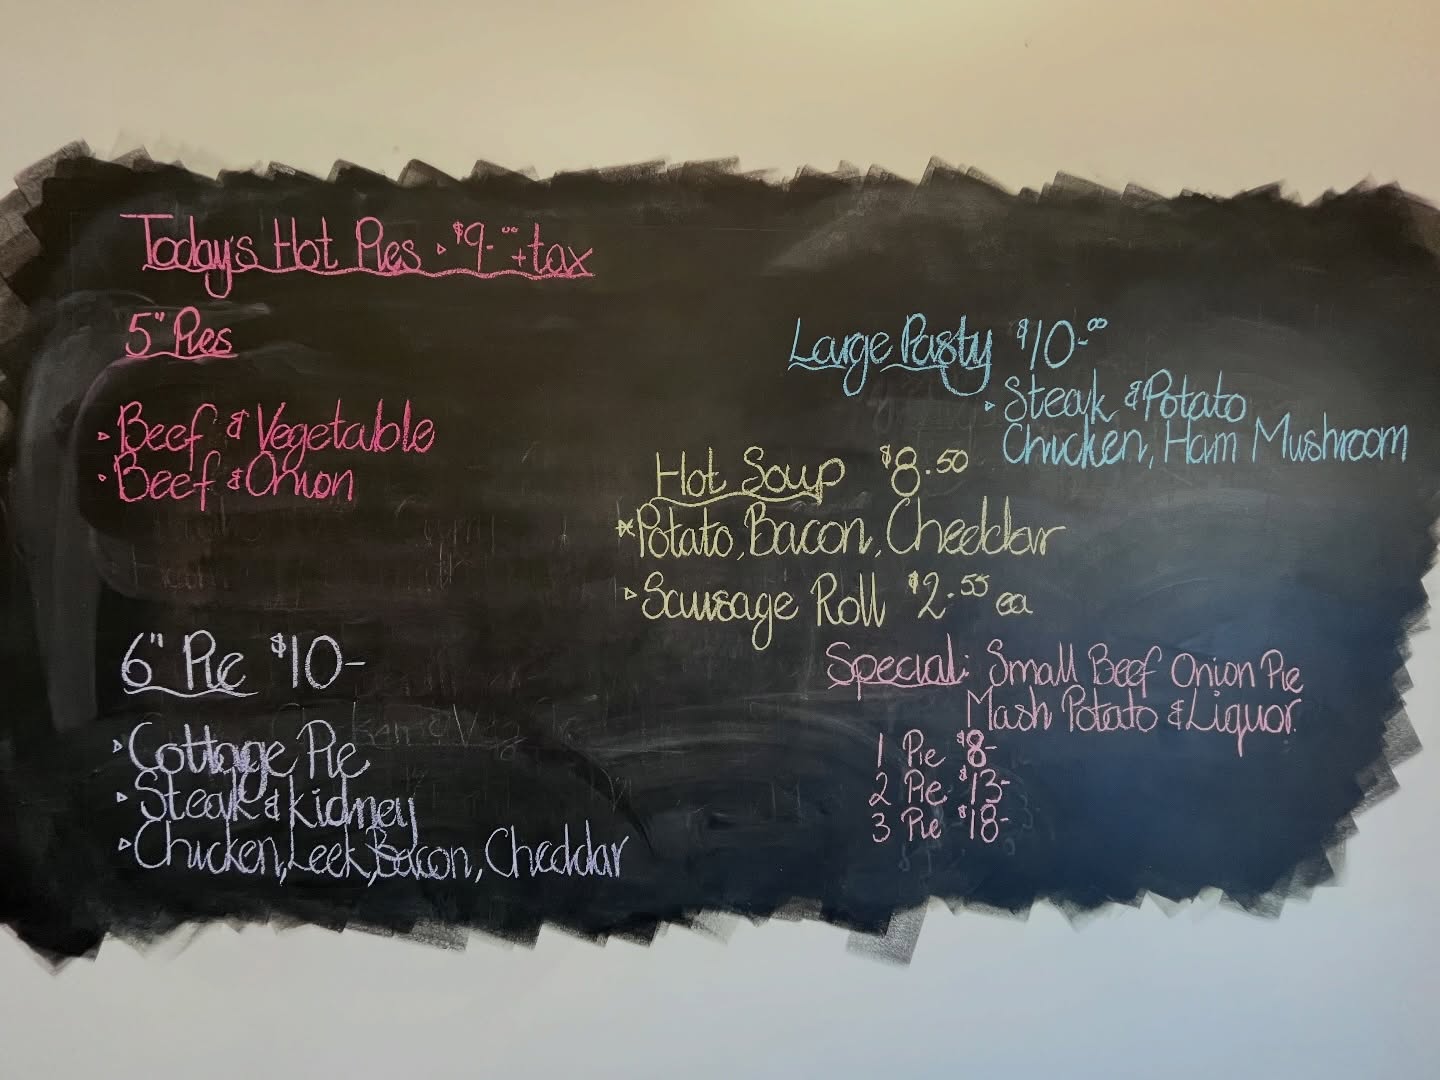 Today's Hot Pies $9-00 + tax
5" Pies
Beef & Vegetable
Beef & Onion
6" Pie $10-
Cottage Pie
Steak & Kidney
Chicken, Leek, Bacon, Cheddar
Large Pasty $10-00
Steak & Potato
Chicken, Ham Mushroom
Hot Soup $8.50
Potato, Bacon, Cheddar
Sausage Roll $2.55 ea
Special: Small Beef Onion Pie
Mash Potato & Liquor.
1 Pie $8-
2 Pie $13-
3 Pie $18-